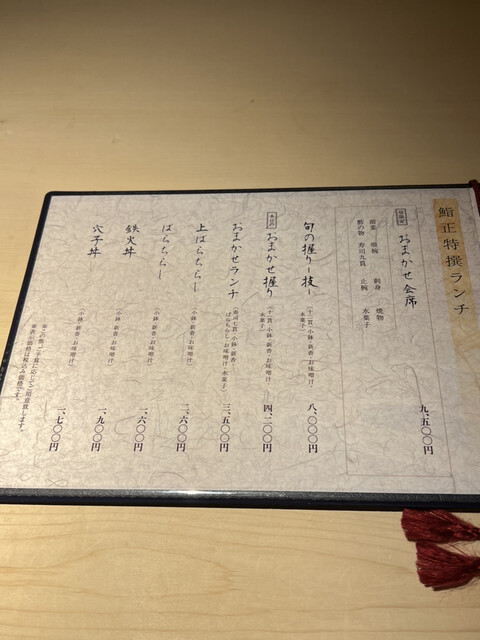 鮨正特撰ランチ
おまかせ会席
前菜 椀 刺身 焼物
酢の物 寿司九貫 止椀 水菓子
九、五〇〇円
旬の握り ー技ー
(十二貫・小鉢・新香・お味噌汁・
水菓子)
八、〇〇〇円
おまかせ握り
(十一貫・小鉢・新香・お味噌汁・
水菓子)
四、二〇〇円
おまかせランチ
(寿司七貫・小鉢・新香・
ばらちらし・お味噌汁・水菓子)
三、五〇〇円
上ばらちらし
(小鉢・新香・お味噌汁)
二、六〇〇円
ばらちらし
(小鉢・新香・お味噌汁)
一、六〇〇円
鉄火丼
(小鉢・新香・お味噌汁)
一、九〇〇円
穴子丼
(小鉢・新香・お味噌汁)
一、七〇〇円
※その他ご予算に応じてご用意致します。
※表示価格は税込み価格です。